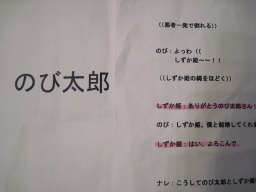 のび太郎
((悪者一発で倒れる))
のび：よっわ((
しずか姫～～！！
((しずか姫の縄をほどく))
しずか姫：ありがとうのび太郎さん！
のび：しずか姫、僕と結婚してくれま
しずか姫：はい、よろこんで
ナレ：こうしてのび太郎としずか姫